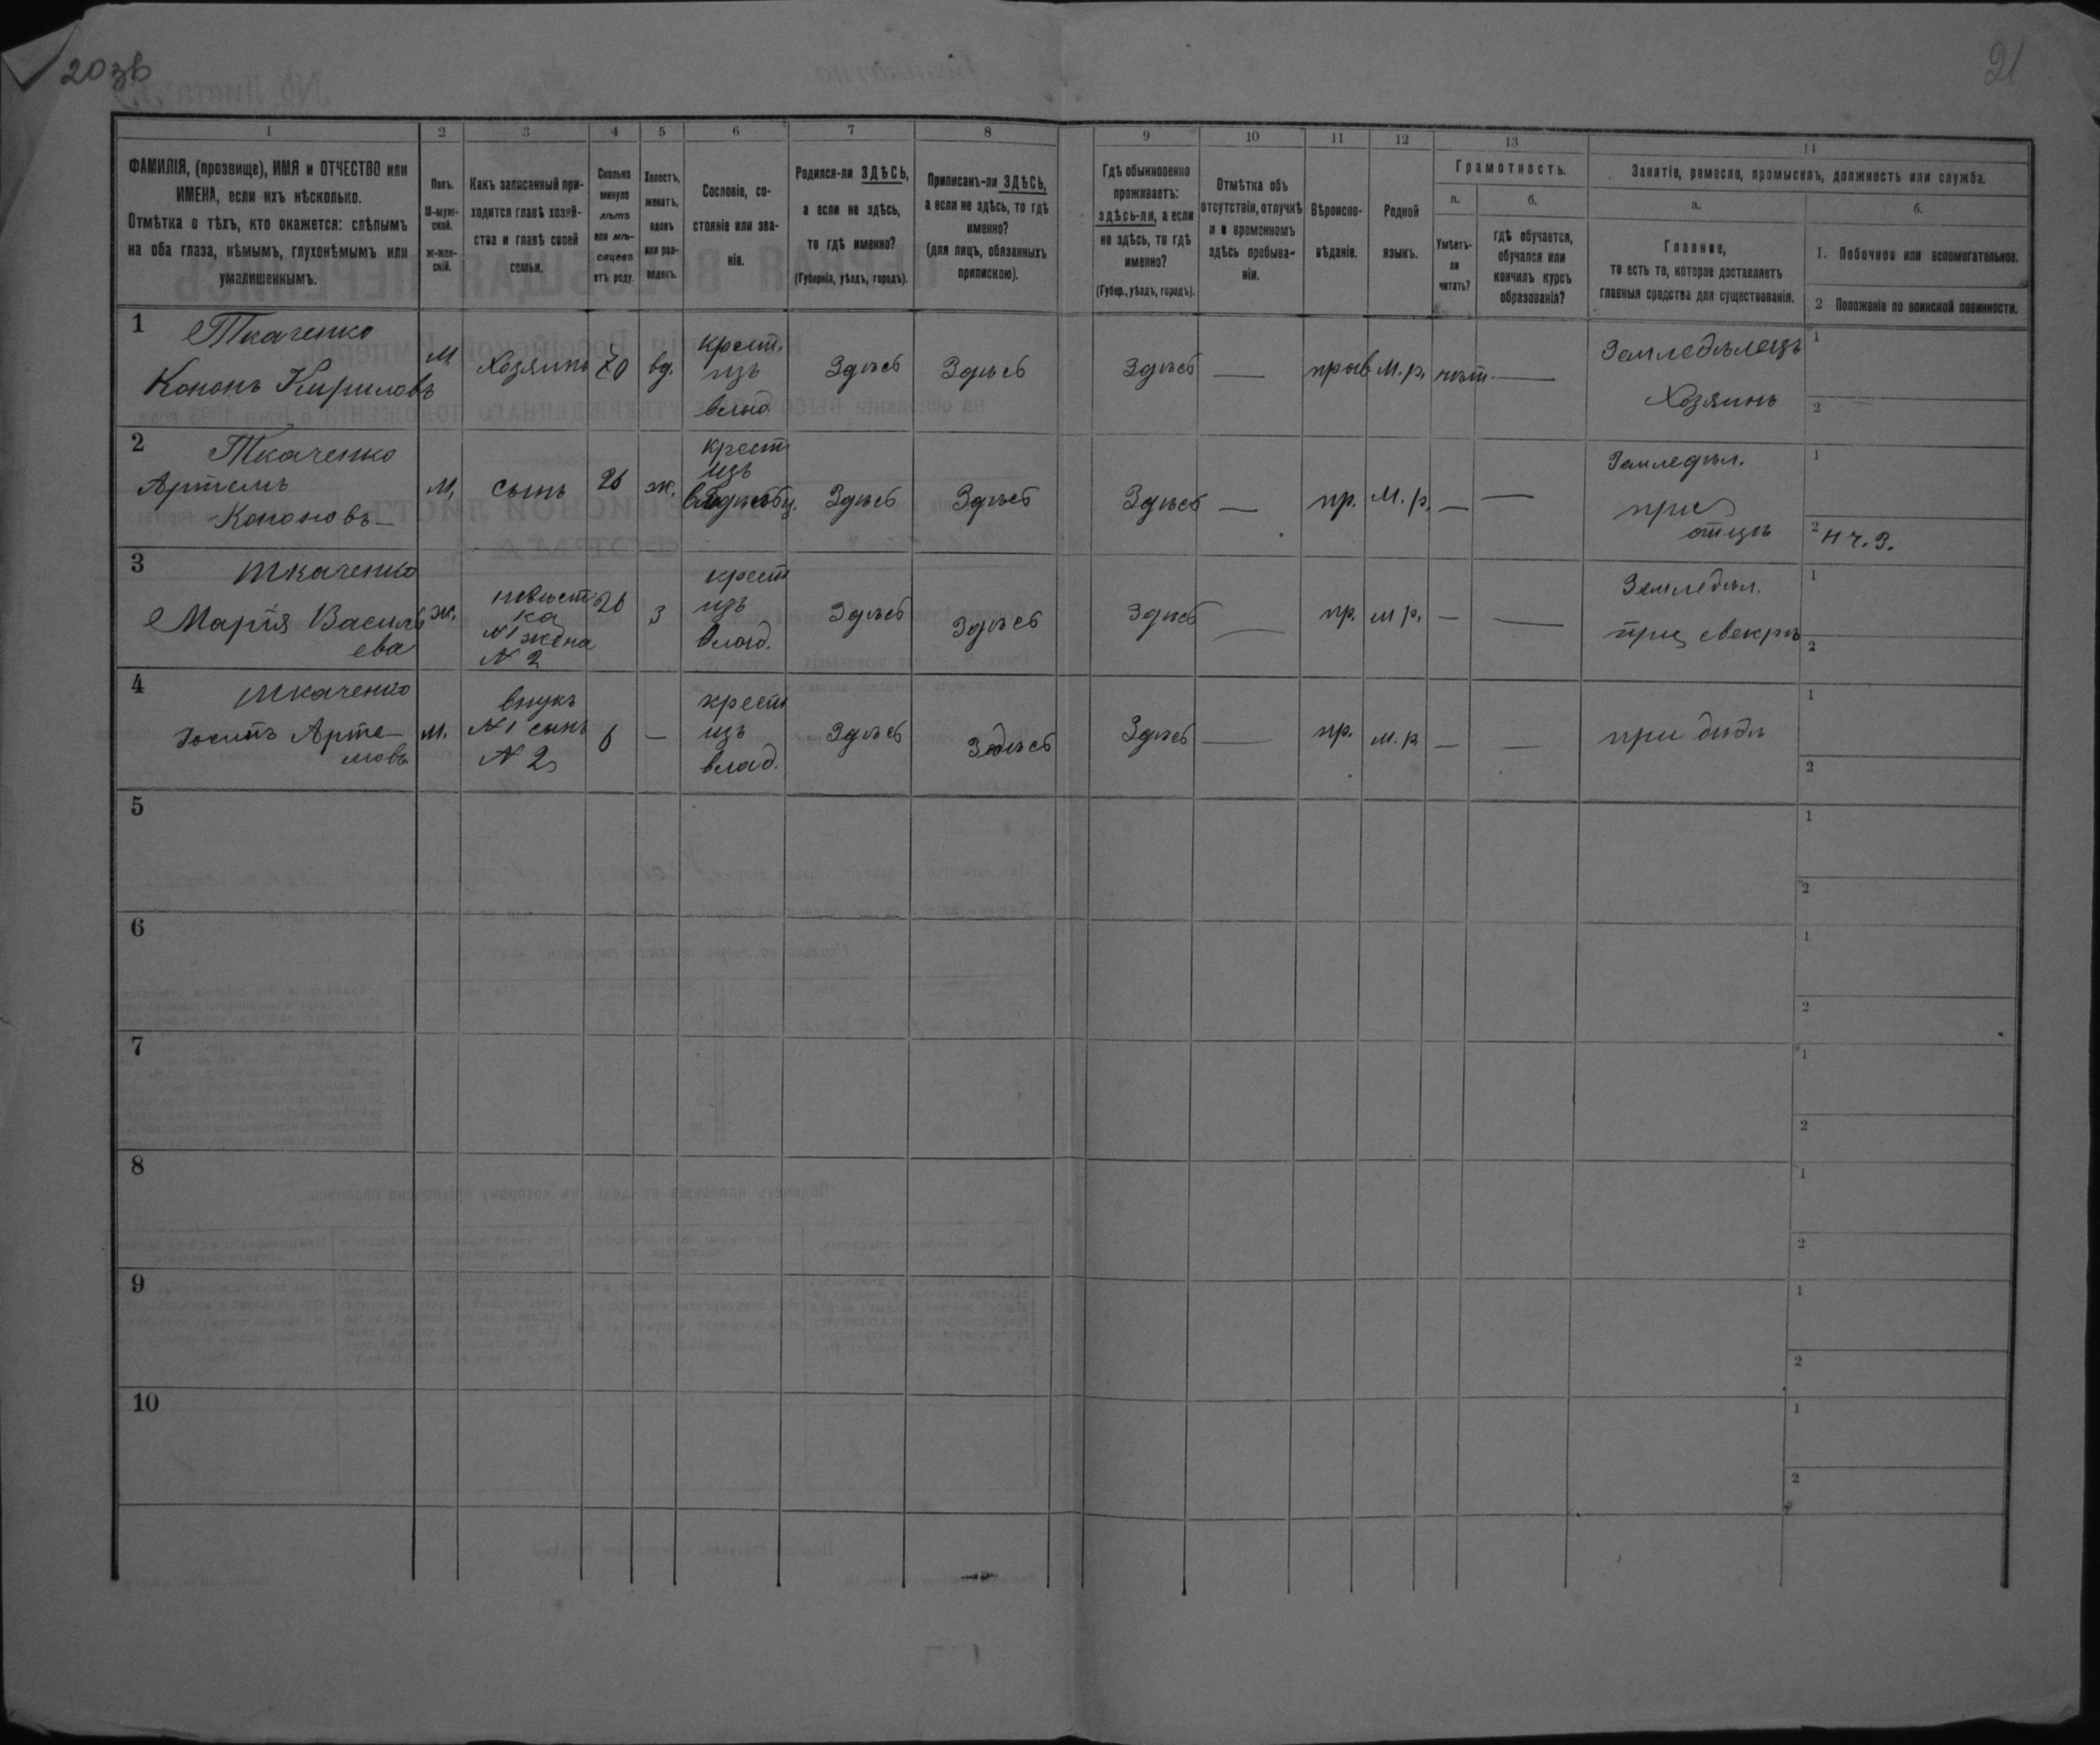 20зв
21
1
2
3
4
5
6
7
8
9
10
11
12
13
14
ФАМИЛІЯ, (прозвище), ИМЯ и ОТЧЕСТВО или
ИМЕНА, если ихъ нѣсколько.
Отмѣтка о тѣхъ, кто окажется: слѣпымъ
на оба глаза, нѣмымъ, глухонѣмымъ или
умалишеннымъ.
Полъ.
М-муж-
ской.
ж-жен-
скій.
Какъ записанный при-
ходится главѣ хозяй-
ства и главѣ своей
семьи.
Сколько
минуло
лѣтъ
или мѣ-
сяцевъ
отъ роду.
Холостъ,
женатъ,
вдовъ
или раз-
веденъ.
Сословіе, со-
стояніе или зва-
ніе.
Родился-ли ЗДѢСЬ,
а если не здѣсь,
то гдѣ именно?
(Губернія, уѣздъ, городъ).
Приписанъ-ли ЗДѢСЬ,
а если не здѣсь, то гдѣ
именно?
(для лицъ, обязанныхъ
припискою).
Гдѣ обыкновенно
проживаетъ:
здѣсь-ли, а если
не здѣсь, то гдѣ
именно?
(Губер., уѣздъ, городъ).
Отмѣтка объ
отсутствіи, отлучкѣ
и о временномъ
здѣсь пребыва-
ніи.
Вѣроиспо-
вѣданіе.
Родной
языкъ.
Грамотность.
а.
Умѣетъ-
ли
читать?
б.
гдѣ обучается,
обучался или
кончилъ курсъ
образованія?
Занятіе, ремесло, промыселъ, должность или служба.
а.
Главное,
то есть то, которое доставляетъ
главныя средства для существованія.
б.
1. Побочное или вспомогательное.
2 Положеніе по воинской повинности.
1
Ткаченко
Кононъ Кириловъ
М
Хозяинъ
70
вд.
крест.
изъ
влад.
Здѣсь
Здѣсь
Здѣсь
—
прав
М.р.
нѣт.
—
Земледѣлецъ
Хозяинъ
1
2
2
Ткаченко
Артемъ
Кононовъ
М.
сынъ
26
ж.
крест
изъ
Здѣсь
Здѣсь
Здѣсь
—
пр.
М.р.
—
—
Земледѣл.
при
отцѣ
1
2 н ч. З.
3
Ткаченко
Марія Василь
ева
ж.
невѣст
ка
№1 жена
№ 2
26
З
крест
изъ
влад.
Здѣсь
Здѣсь
Здѣсь
—
пр.
м р.
—
—
Земледѣл.
при свекрѣ
1
2
4
Ткаченко
Іосипъ Арте-
мовъ
М.
внукъ
№1 сынъ
№ 2
6
—
крест
изъ
влад.
Здѣсь
Здѣсь
Здѣсь
—
пр.
м.р
—
—
при дѣдѣ
1
2
5
1
2
6
1
2
7
1
2
8
1
2
9
1
2
10
1
2